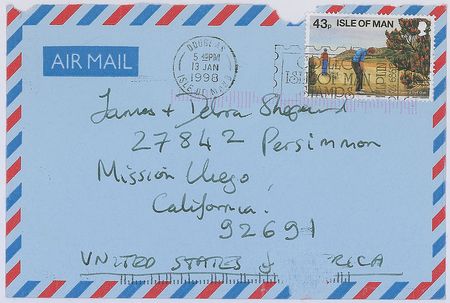 43p ISLE OF MAN
AIR MAIL
DOUGLAS
5 45PM
13 JAN
1998
ISLE OF MAN
COLLECT
ISLE OF MAN
STAMPS
James + Debra Shepard
27842 Persimmon
Mission Viejo,
California.
92691
UNITED STATES of RICA